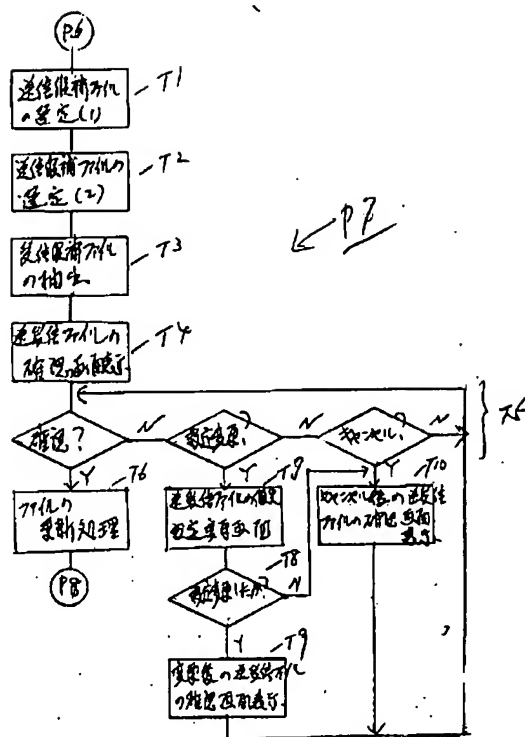 P6
送信候補ファイル
の選定(1)
T1
送信候補ファイルの
選定(2)
T2
受信候補ファイル
の抽出
T3
送受信ファイルの
確認画面表示
T4
P7
T5
確認?
N
設定変更?
N
キャンセル?
N
Y
Y
Y
T6
ファイルの
更新処理
P8
送受信ファイルの
設定変更画面
T8
N
Y
T9
変更後の送受信ファイル
の確認画面表示
T10
キャンセル後の送受信
ファイルの確認画面
表示